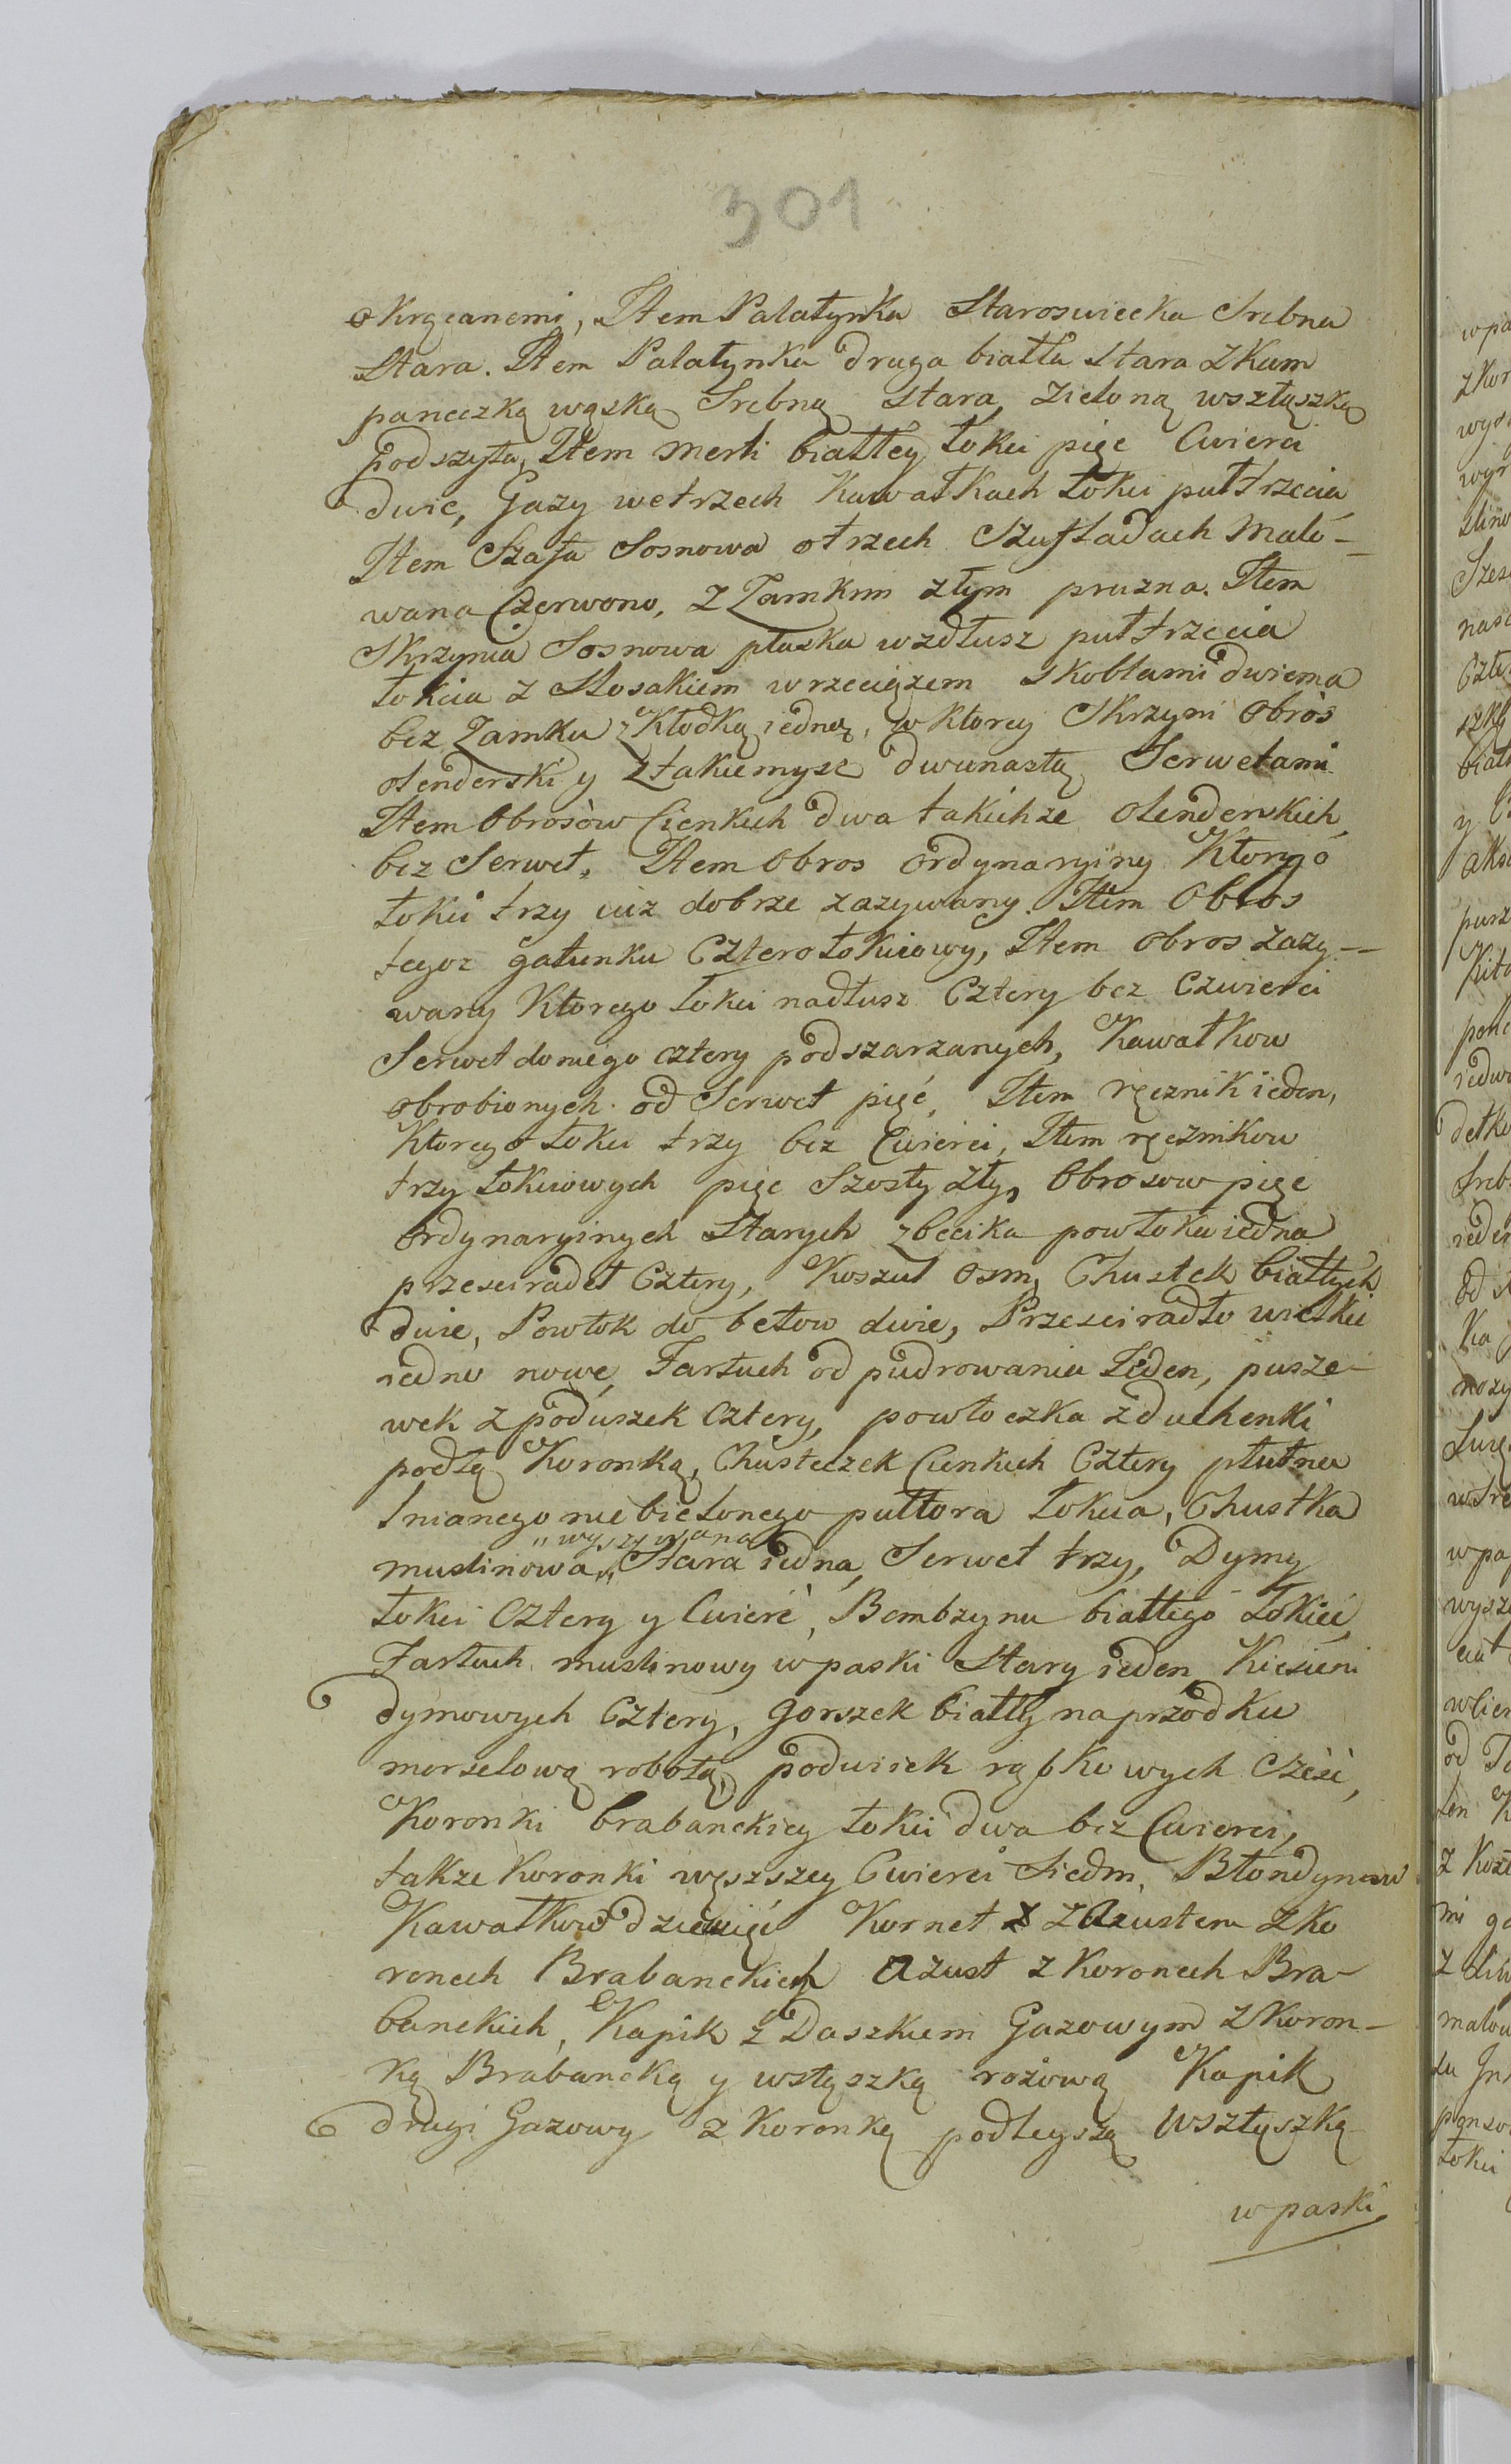 301
okręcanemi, Item Palatynka Staroswiecka Srebna
Stara. Item Palatynka druga białła stara z Kam
paneczką wąską Srebną stara, zieloną wsztąszką
podszyta, Item Merli białłey łokci pięc Cwierci
dwie, Gazy wetrzech Kawałkach łokci pułtrzecia,
Item Szafa Sosnowa otrzech Szufladach Malo-
wana Czerwono, z Zamkim złym prozna. Item
Skrzynia Sosnowa płaska wzdłusz pułtrzecia
łokcia z Kosakiem wrzeciązem skoblami dwiema
bez Zamku z Kłodką iedną, w ktorey Skrzyni Obros
olenderski y z takiemysz dwunastą Serwetami
Item Obrosòw Cienkich dwa takichze olenderskich
bez Serwet, Item Obros ordynaryiny Ktorego
łokci trzy iuz dobrze zazywany. Item Obros
tegoz gatunku Czterołokciowy, Item obros zazy-
wany Ktorego łokci nadłusz Cztery bez Czwierci
Serwet do niego cztery podszarzanych, Kawałkow
obrobionych od Serwet pięć, Item ręcznik ieden,
Ktorego łokci trzy bez Cwierci, Item ręcznikow
trzyłokciowych pięc Szosty zły, Obrosow pięc
ordynaryinych Starych z becika powłoka iedna
przescieradeł Cztery, Koszul osm, Chustek białłych
dwie, Powłok do betow dwie, Przescieradło wielkie
iedno nowe, Fartuch od pudrowania Ieden, pusze-
wek z poduszek cztery, powłoczka z duchenki
podłą Koronką, Chusteczek Cienkich Cztery płutna
lnianego nie bielonego pułtora łokcia, Chustka
muslinowa „wyszywana„ Stara iedna, Serwet trzy, Dymy
łokci Cztery y Cwierć, Bombzynu białłego łokieć,
Fartuch muslinowy w paski Stary ieden, Kieszeni
dymowych Cztery, gorszek białły na przodku
morselową robotą, podwiiek rąbkowych sześć,
Koronki brabanckiey łokci dwa bez Cwierci,
także Koronki węszszey Cwierci Siedm, Blondynow
Kawałkow dziewięć Kornet z Azustem z Ko
ronech Brabanckich Azust z Koronech Bra-
banckich, Kapik z Daszkiem Gazowym z Koron-
ką Brabancką y wstąszką rożową Kapik
drugi Gazowy z Koronką podleyszą wsztąszką
w paski